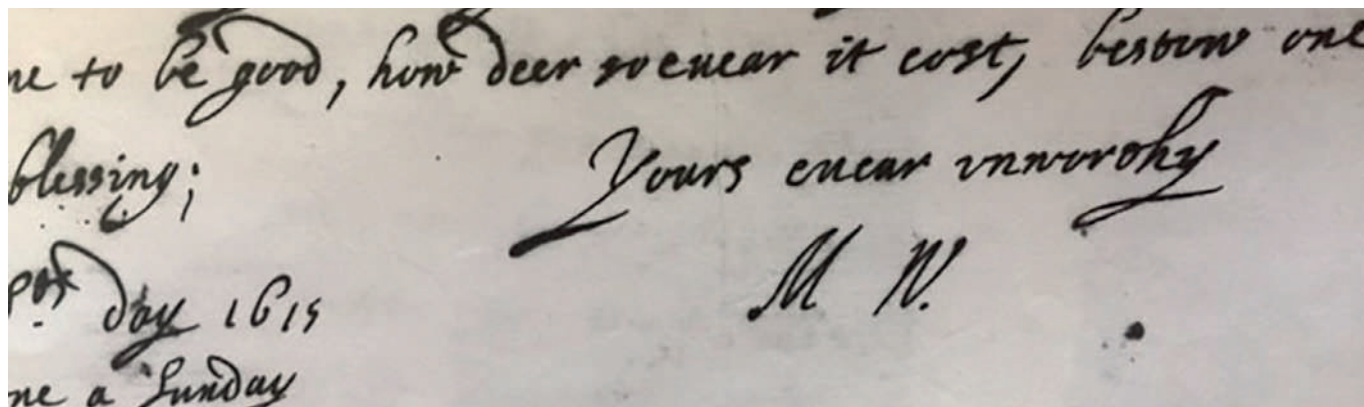 ne to be good, how deer soeuear it cost, bestow one
blessing;
Yours euear vnworthy
M W.
day 1615
ne a Sunday